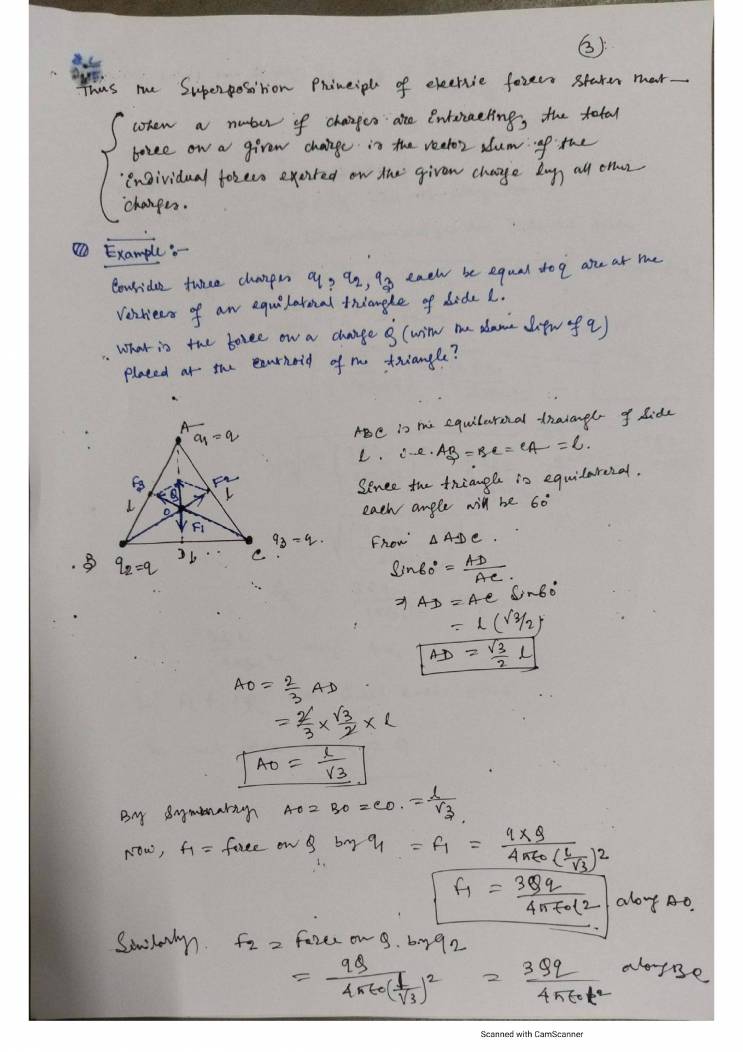 (3)
Thus the Superposition Principle of electric forces states that —
when a number of charges are interacting, the total
force on a given charge is the vector sum of the
individual forces exerted on the given charge by all other
charges.
Example :-
Consider three charges q1, q2, q3 each be equal to q are at the
vertices of an equilateral triangle of side l.
What is the force on a charge Q (with the same sign of q)
placed at the centroid of the triangle?
A
q1 = q
F3
F2
l
Q
l
O
F1
B
q2 = q
D
l
C
q3 = q.
ABC is the equilateral traiangle of side
l. i.e. AB = BC = CA = l.
Since the triangle is equilateral.
each angle will be 60°
From △ADC.
Sin60° = AD/AC.
⇒ AD = AC Sin60°
= l (√3/2)
AD = √3/2 l
AO = 2/3 AD
= 2/3 × √3/2 × l
AO = l/√3
By Symmetry AO = BO = CO. = l/√3.
Now, F1 = force on Q by q1 = F1 = q×Q / 4πε0 (l/√3)2
F1 = 3Qq / 4πε0l2 along AO.
Similarly, F2 = Force on Q. by q2
= qQ / 4πε0(l/√3)2 = 3Qq / 4πε0l2 along BC
Scanned with CamScanner